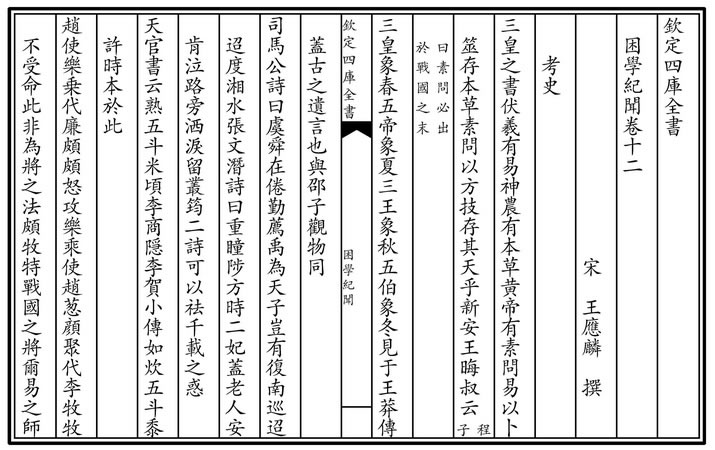 欽定四庫全書
困學紀聞卷十二
宋 王應麟 撰
考史
三皇之書伏羲有易神農有本草黄帝有素問易以卜
筮存本草素問以方技存其天乎新安王晦叔云程子
曰素問必出
於戰國之末
三皇象春五帝象夏三王象秋五伯象冬見于王莽傳
欽定四庫全書
困學紀聞
蓋古之遺言也與邵子觀物同
司馬公詩曰虞舜在倦勤薦禹為天子豈有復南巡迢
迢度湘水張文潛詩曰重瞳陟方時二妃蓋老人安
肯泣路旁洒淚留叢筠二詩可以祛千載之惑
天官書云熟五斗米頃李商隱李賀小傳如炊五斗黍
許時本於此
趙使樂乗代廉頗頗怒攻樂乘使趙葱顔聚代李牧牧
不受命此非為將之法頗牧特戰國之將爾易之師